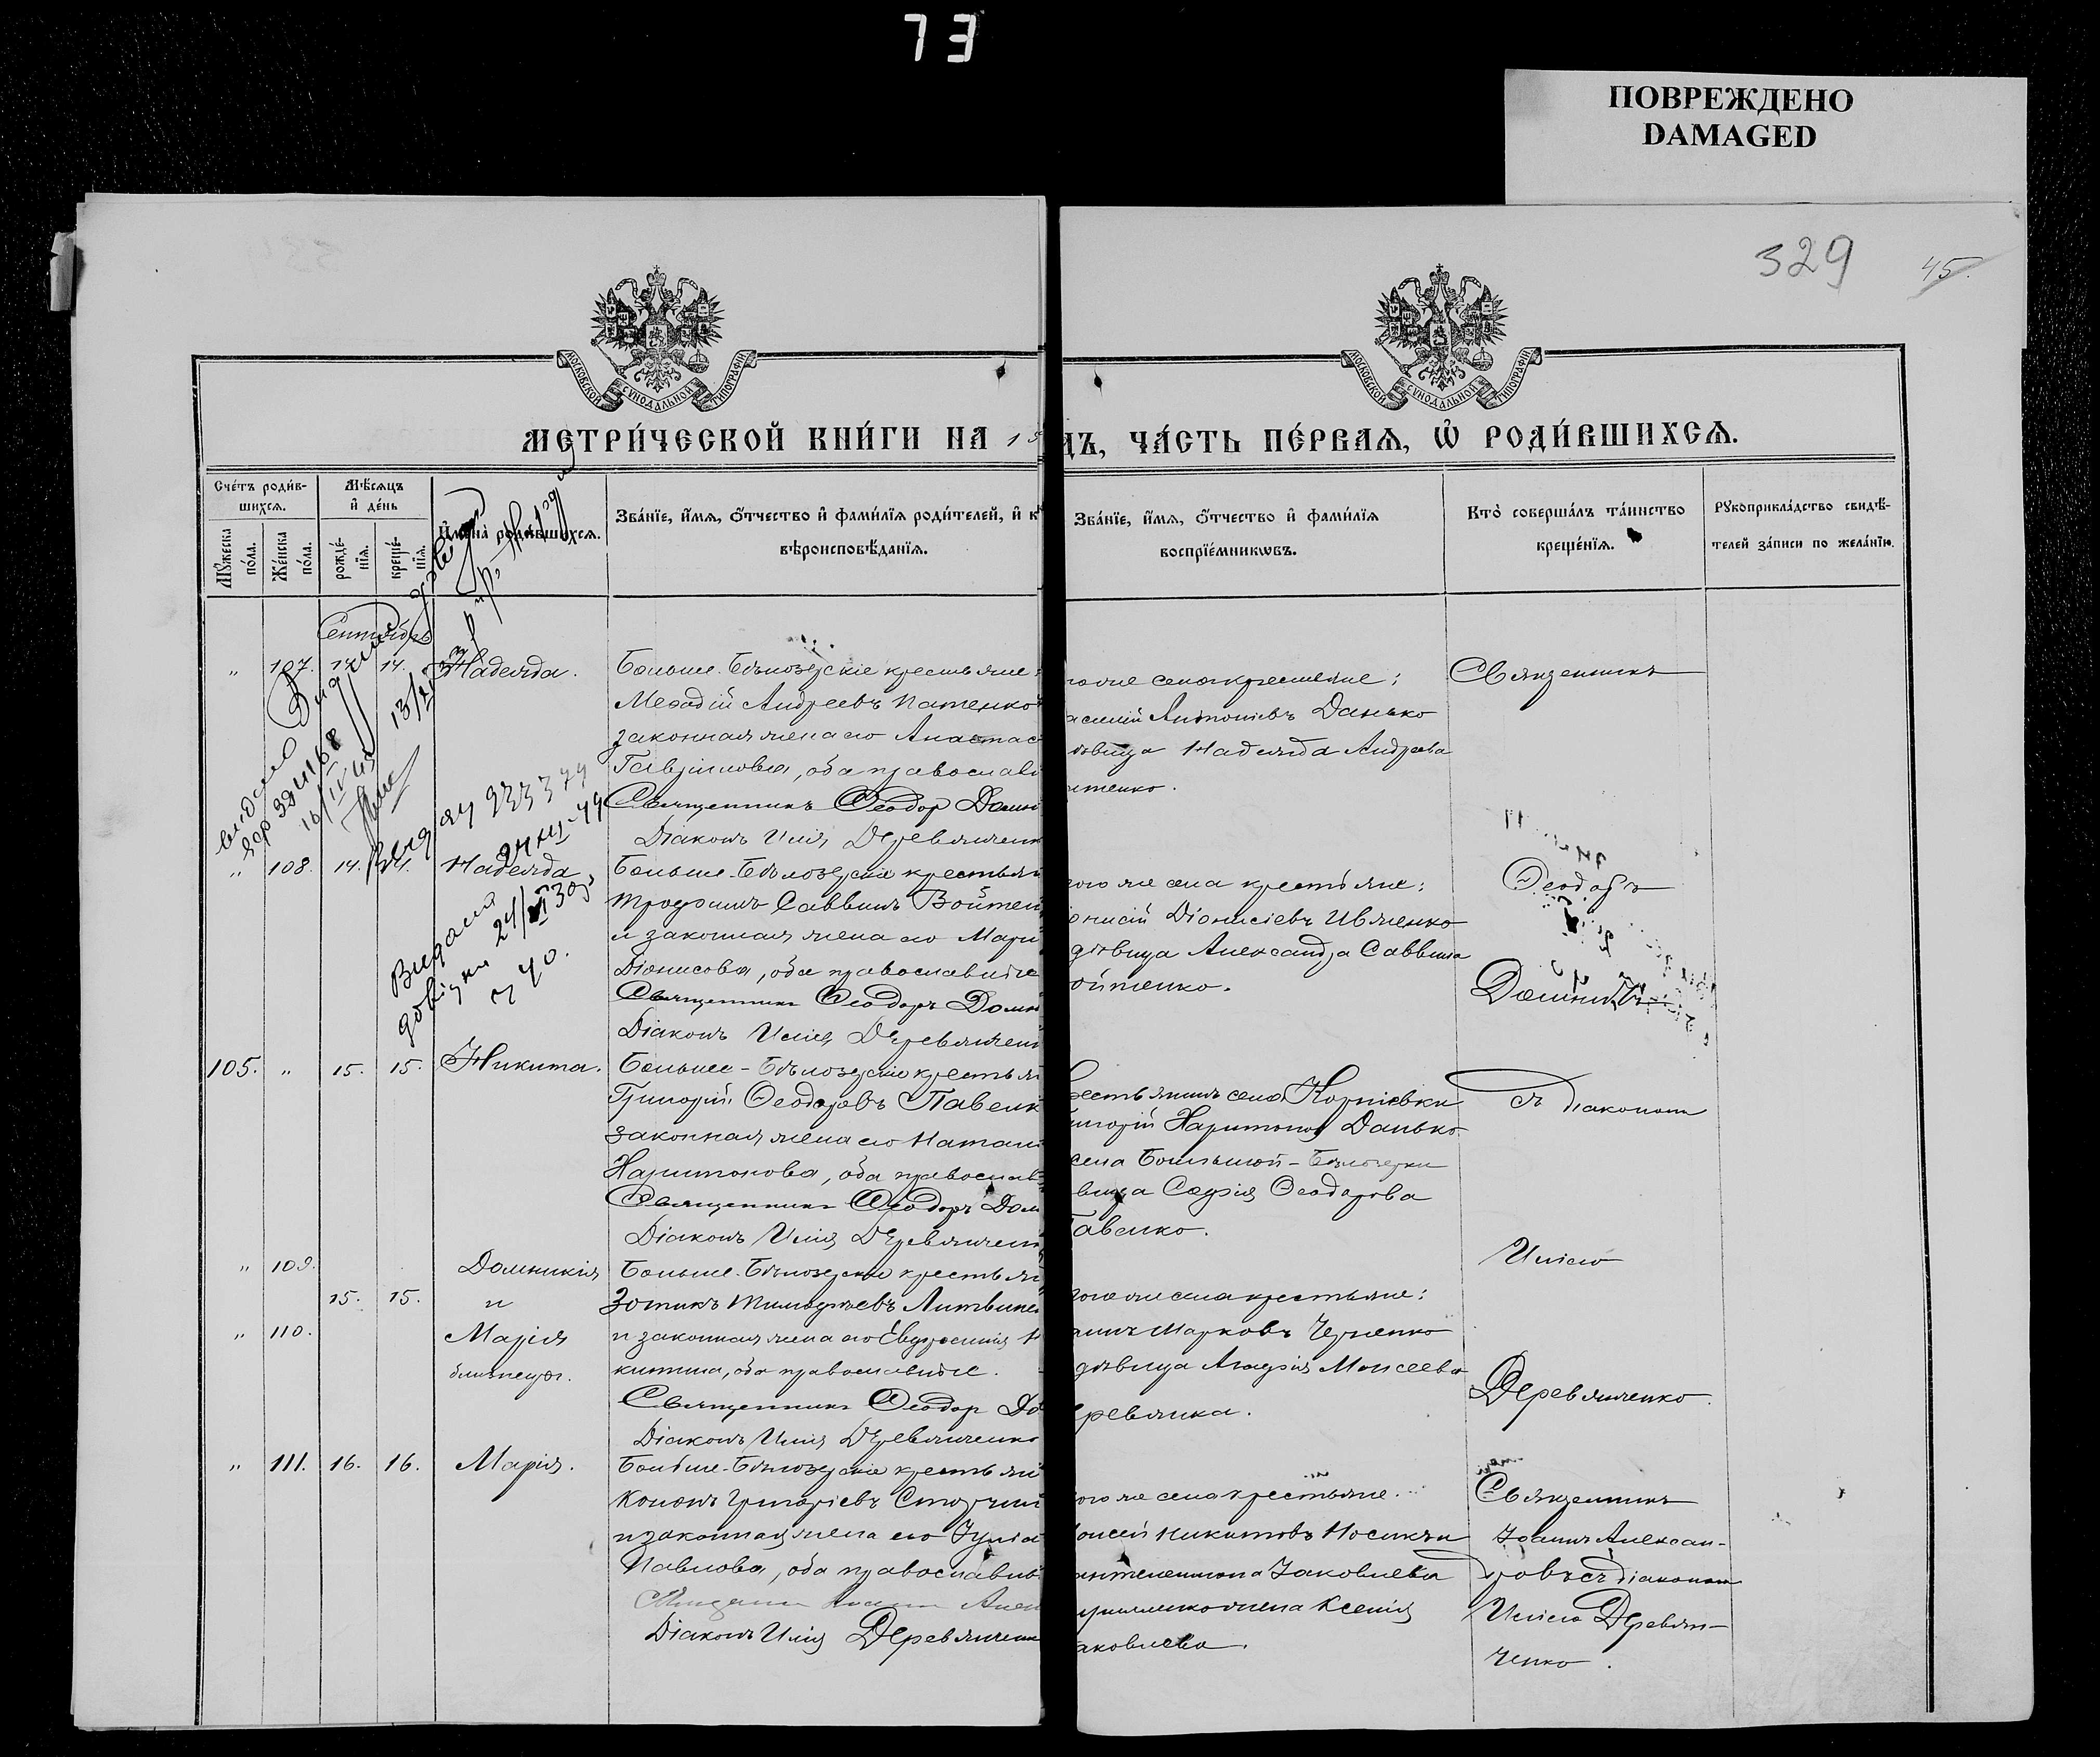 73
ПОВРЕЖДЕНО
DAMAGED
329
45.
МОСКОВСКОЙ СѴНОДАЛЬНОЙ ТИПОГРАФІИ
МОСКОВСКОЙ СѴНОДАЛЬНОЙ ТИПОГРАФІИ
МЕТРИ́ЧЕСКОЙ КНИ́ГИ НА 19
ДЪ, ЧА́СТЬ ПЕ́РВАѦ, Ѽ РОДИ́ВШИХСѦ.
Сче́тъ роди́в-
шихсѧ.
Мꙋ́жеска по́ла.
Же́нска по́ла.
Мѣ́сѧцъ
и҆ де́нь
рожде́нїѧ.
креще́нїѧ.
И҆мена̀ роди́вшихсѧ.
Зва́нїе, и҆́мѧ, ѻ҆́тчество и҆ фами́лїѧ роди́телей, и҆ к
вѣроисповѣ́данїѧ.
Зва́нїе, и҆́мѧ, ѻ҆́тчество и҆ фами́лїѧ
воспрїе́мникѡвъ.
Кто̀ соверша́лъ та́инство
креще́нїѧ.
Рꙋкоприкла́дство свидѣ́-
телей за́писи по жела́нїю.
Сентябрь
" 107. 14. 14. Надежда.
Больше-Бѣлозерскіе крестьяне:
Меѳодій Андреевъ Патенко
законная жена его Анастас
Гавриловна, оба православн
Священникъ Ѳеодор Домн
Діаконъ Илія Деревянченк
оже села крестьяне:
асилій Антоніевъ Данько
ѣвица Надежда Андреева
атенко.
Священникъ
" 108. 14. 14. Надежда
Больше-Бѣлозерскіе крестьян
Трофимъ Саввинъ Войтен
и законная жена его Мари
Діонисова, оба православные
Священникъ Ѳеодоръ Домн
Діаконъ Илія Деревянчен
ого же села крестьяне:
іонисій Діонисіевъ Ивженко
дѣвица Александра Саввина
ойтенко.
Ѳеодоръ
Видана
довідка 24/VI 30р.
ч 40.
105. " 15. 15. Никита.
Больше-Бѣлозерскіе крестьян
Григорій Ѳеодоровъ Павелк
законная жена его Натали
Харитонова, оба православ
Священникъ Ѳеодоръ Дом
Діаконъ Илія Деревянченк
рестьянинъ села Корніевки
игорій Харитоновъ Данько
села Большой-Бѣлозерки
вица Софія Ѳеодорова
авелко.
съ діакономъ
Иліею
Деревянченко.
" 109. Домникія
15. 15. и
" 110. Марія
близнецы.
Больше-Бѣлозерскіе крестьян
Зотикъ Тимофѣевъ Литвинен
и законная жена его Евфросинія Н
китина, оба православные.
Священникъ Ѳеодор До
Діаконъ Илія Деревянченко
ого же села крестьяне:
Марковъ Черненко
дѣвица Агафія Моисеева
еревянка.
" 111. 16. 16. Марія.
Больше-Бѣлозерскіе крестьян
Кононъ Григоріевъ Сторчак
и законная жена его Іуліа
Павлова, оба православн
Діаконъ Илія Деревянченк
ого же села крестьяне.
оисей Никитовъ Носикъ и
антелеимона Іаковлева
жена Ксенія
аковлева.
Священникъ
Іоаннъ Алексан-
дровъ съ діакономъ
Иліею Деревян-
ченко.